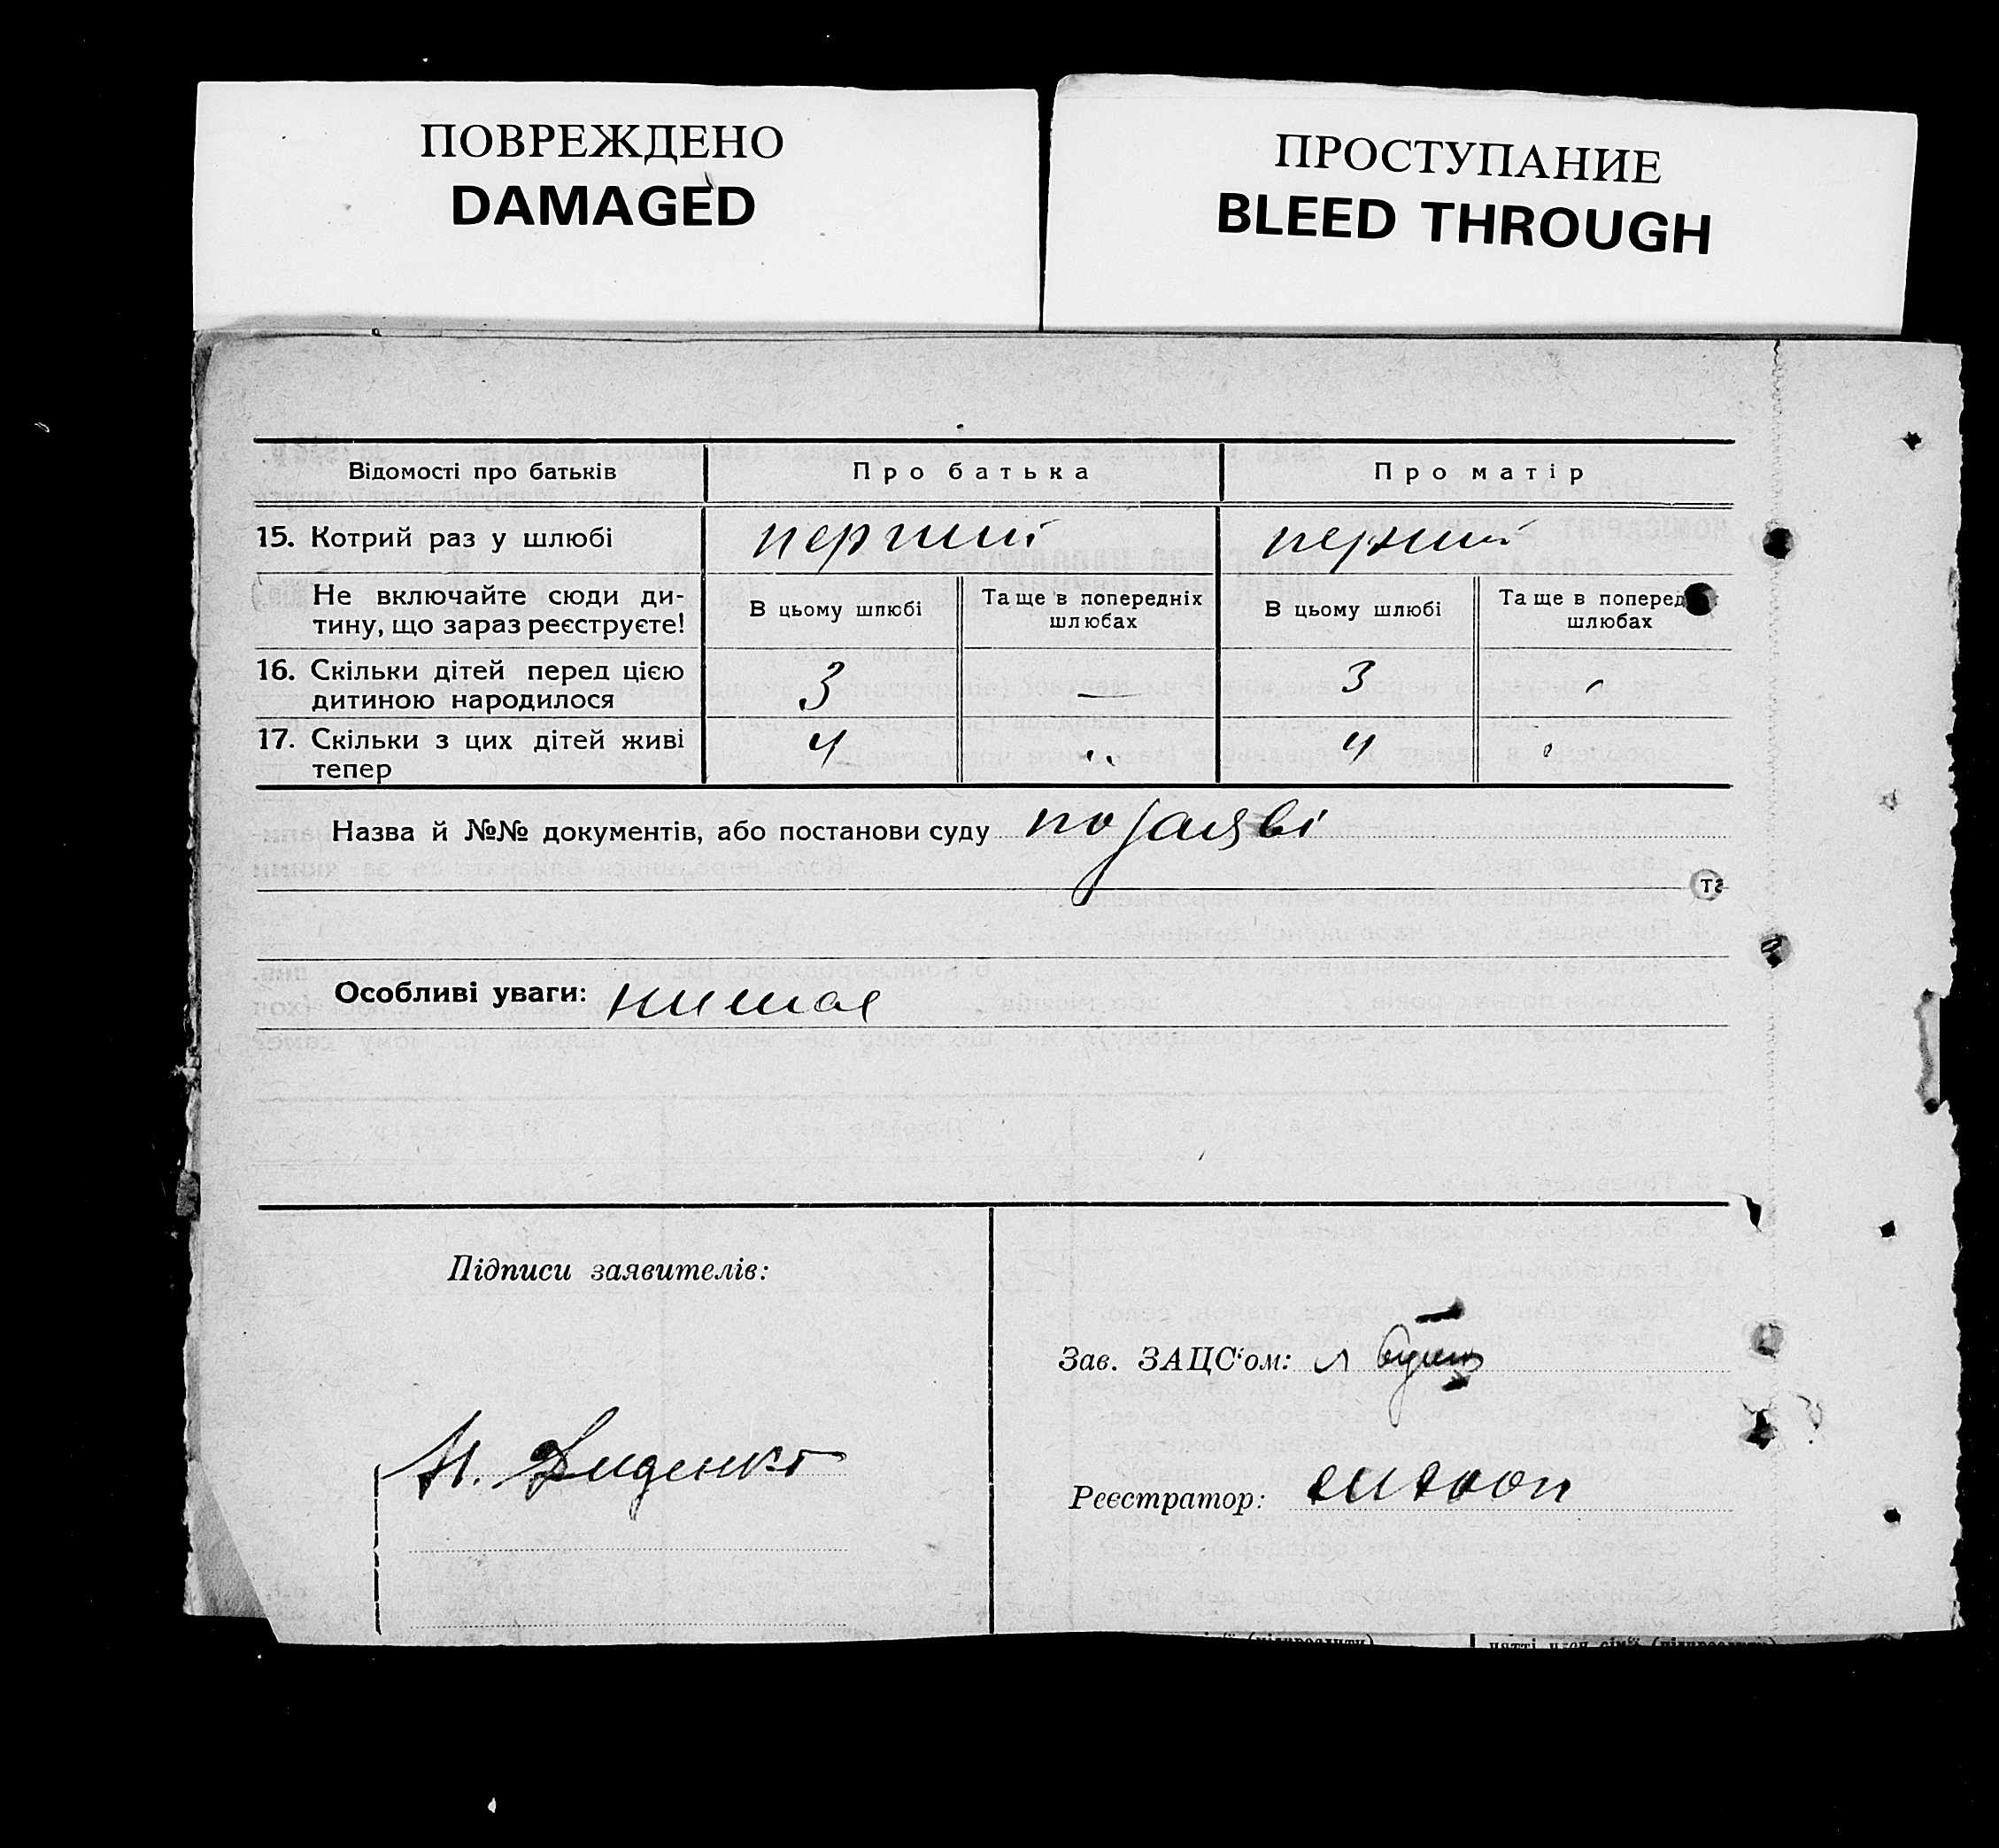 ПОВРЕЖДЕНО
DAMAGED
ПРОСТУПАНИЕ
BLEED THROUGH
Відомості про батьків Про батька Про матір
15. Котрий раз у шлюбі перший перший
Не включайте сюди ди-
тину, що зараз реєструєте!
В цьому шлюбі
Та ще в попередніх
шлюбах
В цьому шлюбі
Та ще в поперед
шлюбах
16. Скільки дітей перед цією
дитиною народилося 3 — 3
17. Скільки з цих дітей живі
тепер 4 4
Назва й №№ документів, або постанови суду по заяві
та
Особливі уваги: немає
Підписи заявителів:
Зав. ЗАЦС'ом:
Диденко
Реєстратор: